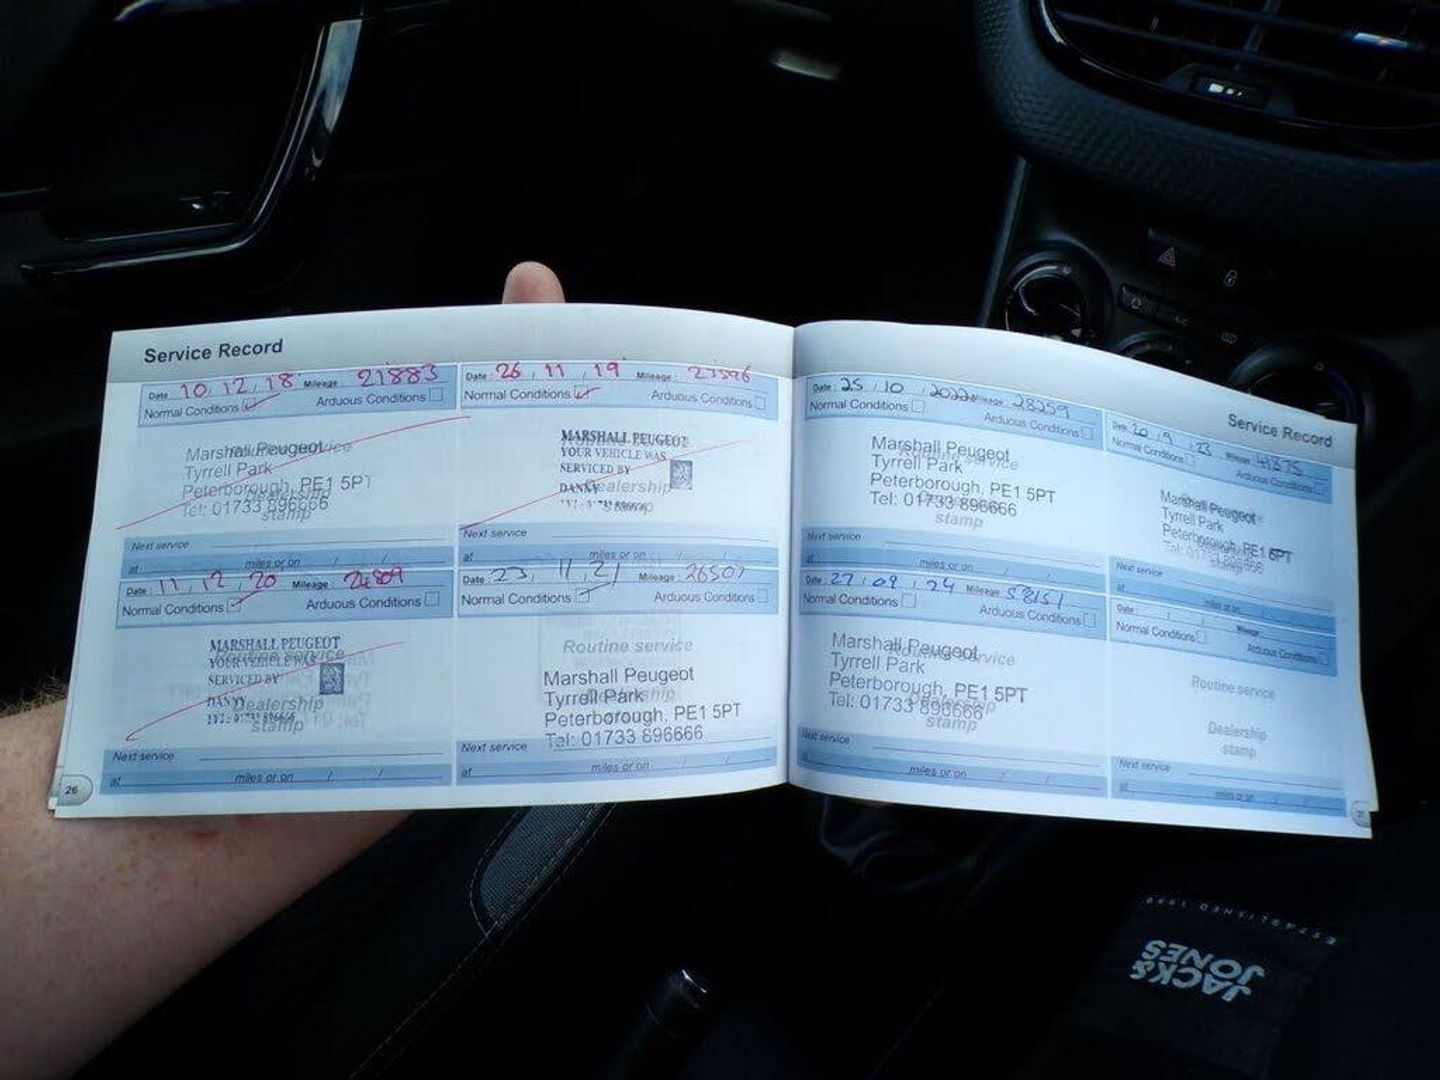 Service Record
Date 10, 12, 18 Mileage 21883
Normal Conditions Arduous Conditions
Marshall Peugeot
Routine service
Tyrrell Park
Peterborough, PE1 5PT
Dealership
Tel: 01733 896666
stamp
Next service
at miles or on / /
Date: 26, 11, 19 Mileage:
Normal Conditions Arduous Conditions
MARSHALL PEUGEOT
Routine service
YOUR VEHICLE WAS
SERVICED BY
DANNY Dealership
stamp
Next service
at miles or on / /
Date: 11, 12, 20 Mileage: 24809
Normal Conditions Arduous Conditions
MARSHALL PEUGEOT
YOUR VEHICLE WAS
Routine service
SERVICED BY
DANNY Dealership
stamp
Next service
at miles or on / /
26
Date: 23, 11, 21 Mileage: 26507
Normal Conditions Arduous Conditions
Routine service
Marshall Peugeot
Tyrrell Park
Dealership
Peterborough, PE1 5PT
Next service Tel: 01733 896666
at miles or on / /
Service Record
Date: 25, 10, 2022 Mileage 28259
Normal Conditions Arduous Conditions
Marshall Peugeot
Routine service
Tyrrell Park
Peterborough, PE1 5PT
Tel: 01733 896666
stamp
Next service
at miles or on / /
Date: 20, 9, 23 Mileage: 41375
Normal Conditions Arduous Conditions
Marshall Peugeot
Tyrrell Park
Peterborough, PE1 5PT
stamp
Next service
at miles or on / /
Date: 27, 09, 24 Mileage 58151
Normal Conditions Arduous Conditions
Marshall Peugeot
Routine service
Tyrrell Park
Peterborough, PE1 5PT
Tel: 01733 896666
stamp
Next service
at miles or on / /
Date: / / Mileage
Normal Conditions Arduous Conditions
Routine service
Dealership
stamp
Next service
at miles or on / /
JACK &
JONES
ESTABLISHED 1990